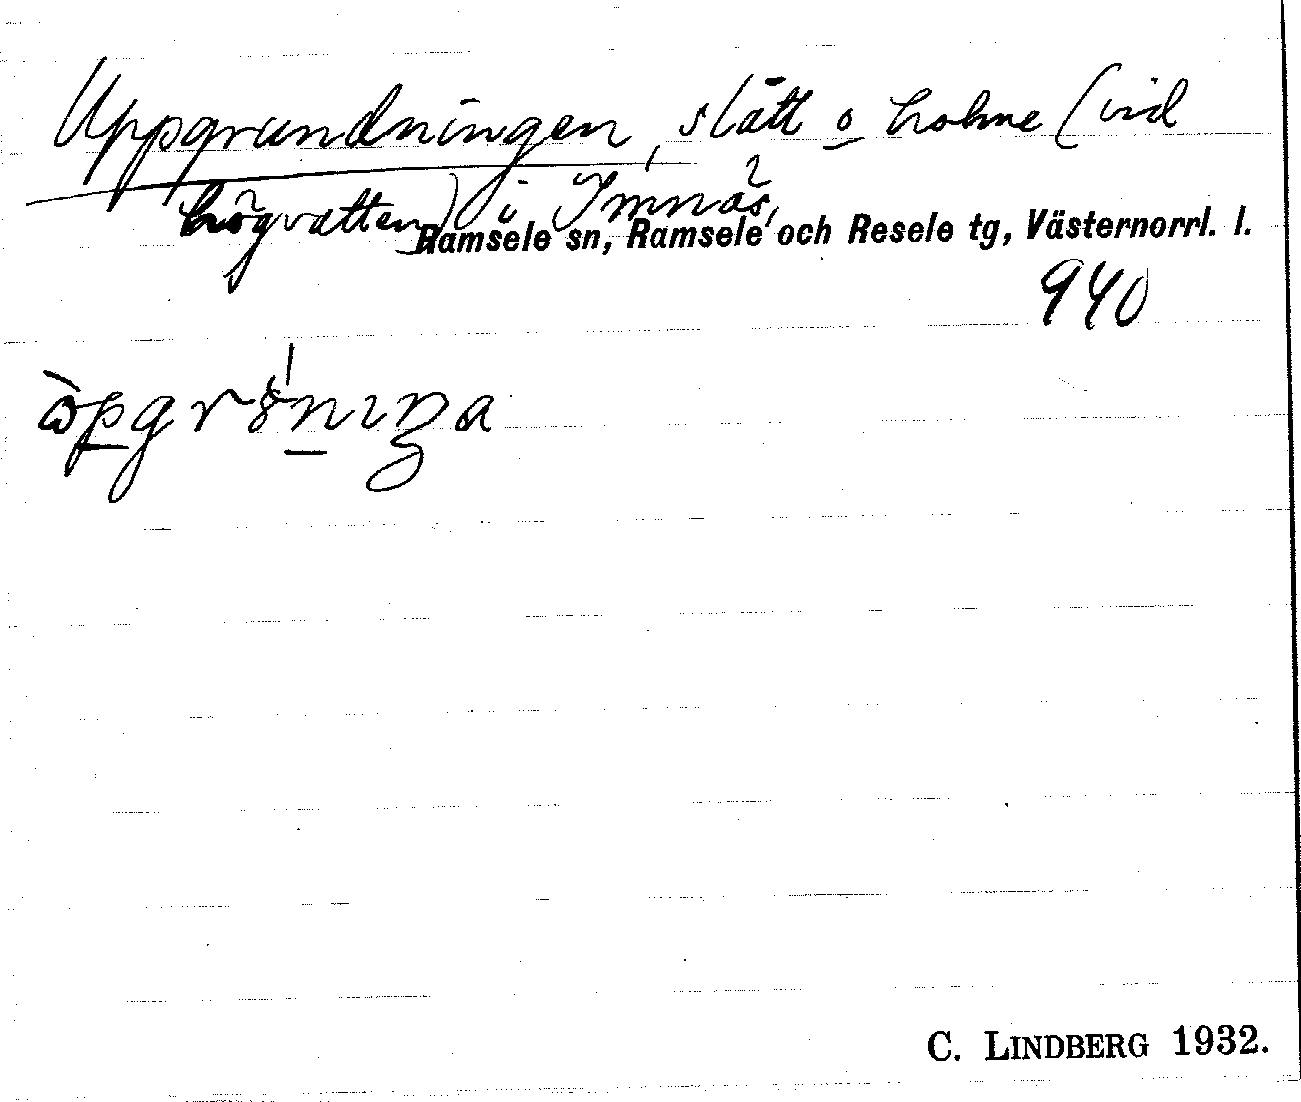 Uppgrundningen, slått o holme (vid
högvatten) i Imnäs,
Ramsele sn, Ramsele och Resele tg, Västernorrl. l.
940
C. LINDBERG 1932.